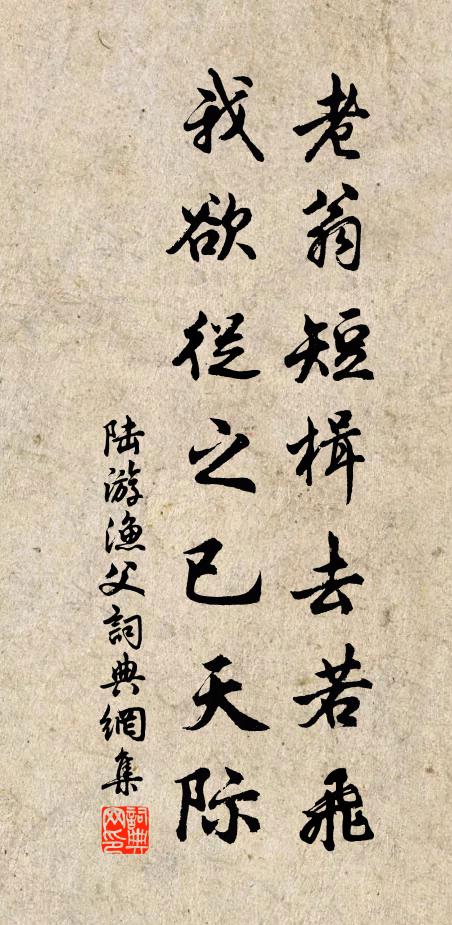 老翁短楫去若飛
我欲從之已天际
陆游漁父詞典網集
詞典網印